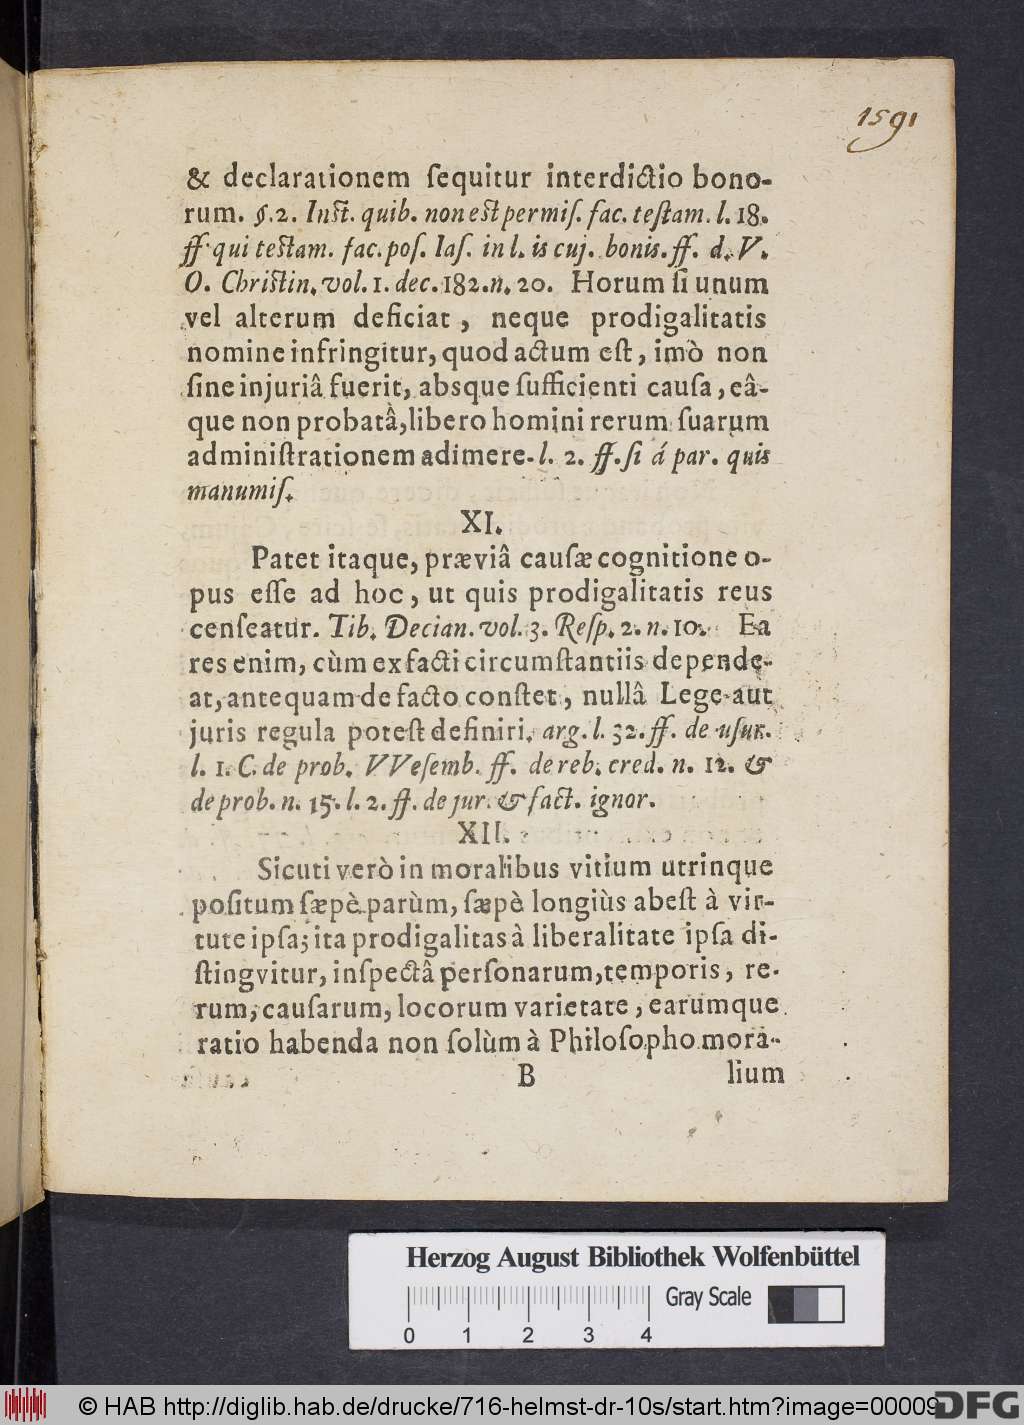 1591
& declarationem ſequitur interdictio bono-
rum. §. 2. Inſt. quib. non eſt permiſ. fac. teſtam. l. 18.
ff. qui teſtam. fac. poſ. Iaſ. in l. is cuj. bonis. ff. d. V.
O. Chriſtin. vol. 1. dec. 182. n. 20. Horum ſi unum
vel alterum deficiat, neque prodigalitatis
nomine infringitur, quod actum eſt, imò non
ſine injuriâ fuerit, absque ſufficienti cauſa, eâ-
que non probatâ, libero homini rerum ſuarum
adminiſtrationem adimere. l. 2. ff. ſi á par. quis
manumiſ.
XI.
Patet itaque, præviâ cauſæ cognitione o-
pus eſſe ad hoc, ut quis prodigalitatis reus
cenſeatur. Tib. Decian. vol. 3. Reſp. 2. n. 10. Ea
res enim, cùm ex facti circumſtantiis depende-
at, antequam de facto conſtet, nullâ Lege aut
juris regula poteſt definiri. arg. l. 32. ff. de uſur.
l. 1. C. de prob. VVeſemb. ff. de reb. cred. n. 12. &
de prob. n. 15. l. 2. ff. de jur. & fact. ignor.
XII.
Sicuti verò in moralibus vitium utrinque
poſitum ſæpè parùm, ſæpè longiùs abeſt à vir-
tute ipſa; ita prodigalitas à liberalitate ipſa di-
ſtingvitur, inſpectâ perſonarum, temporis, re-
rum, cauſarum, locorum varietate, earumque
ratio habenda non ſolùm à Philoſopho mora-
B lium
Herzog August Bibliothek Wolfenbüttel
Gray Scale
0 1 2 3 4
© HAB http://diglib.hab.de/drucke/716-helmst-dr-10s/start.htm?image=00009
DFG